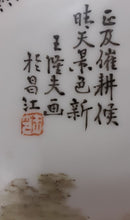 正及催耕候
晴天景色新
王隆夫画
於昌江